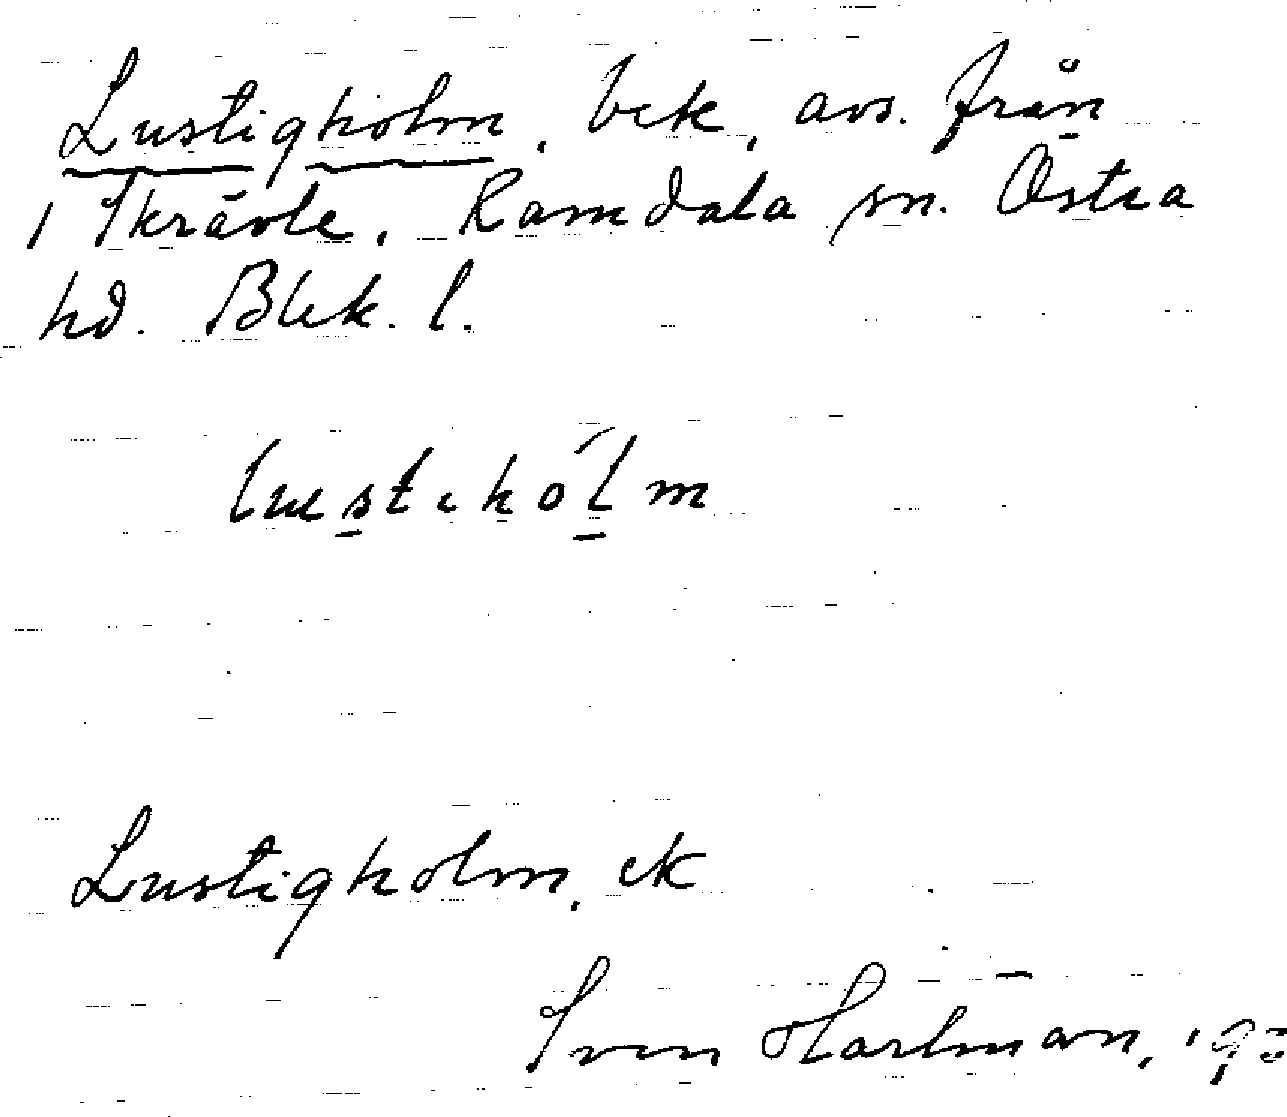 Lustigholm, bek, avs. från
1 Skrävle, Ramdala sn. Östra
hd. Blek. l.
lustiholm
Lustigholm, ek
Sven Hartman,